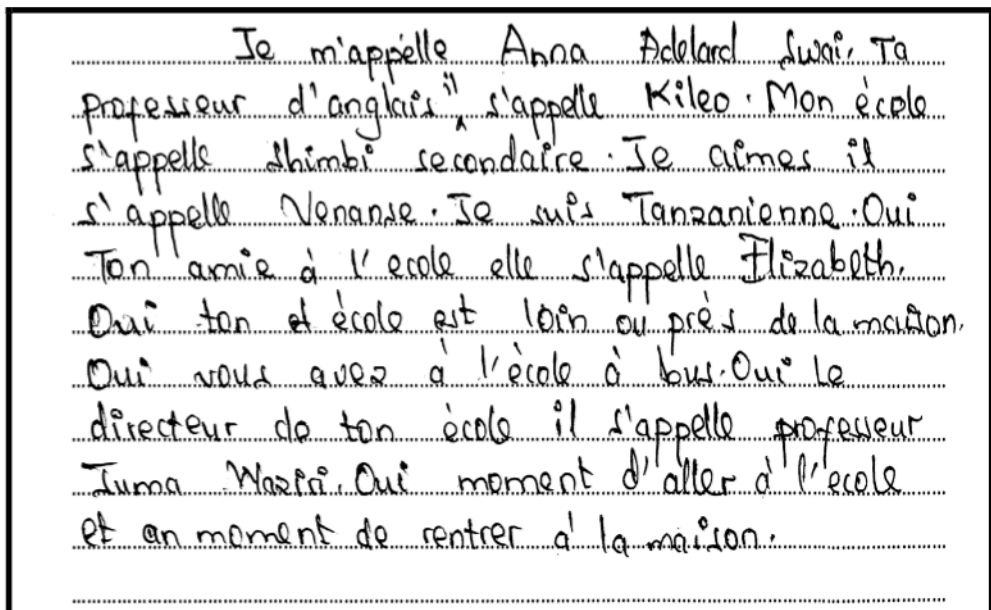 Je m'appelle Anna Adelard Swai. Ta
professeur d'anglais il s'appelle Kileo. Mon école
s'appelle Shimbi secondaire. Je aimes il
s'appelle Venanse. Je suis Tanzanienne. Oui
Ton amie à l'ecole elle s'appelle Elizabeth.
Oui ton et école est loin ou près de la maison.
Oui vous avez à l'ècole à bus. Oui Le
directeur de ton ècole il s'appelle professeur
Juma Waziri. Oui moment d'aller à l'ecole
et an moment de rentrer à la maison.